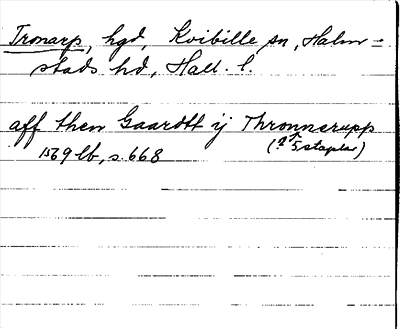 Tronarp, hgd, Kvibille sn, Halm=
stads hd, Hall. l.
aff then Gaardtt ij Thronnerupp
1569 lb, s. 668 (? 5 stapler)